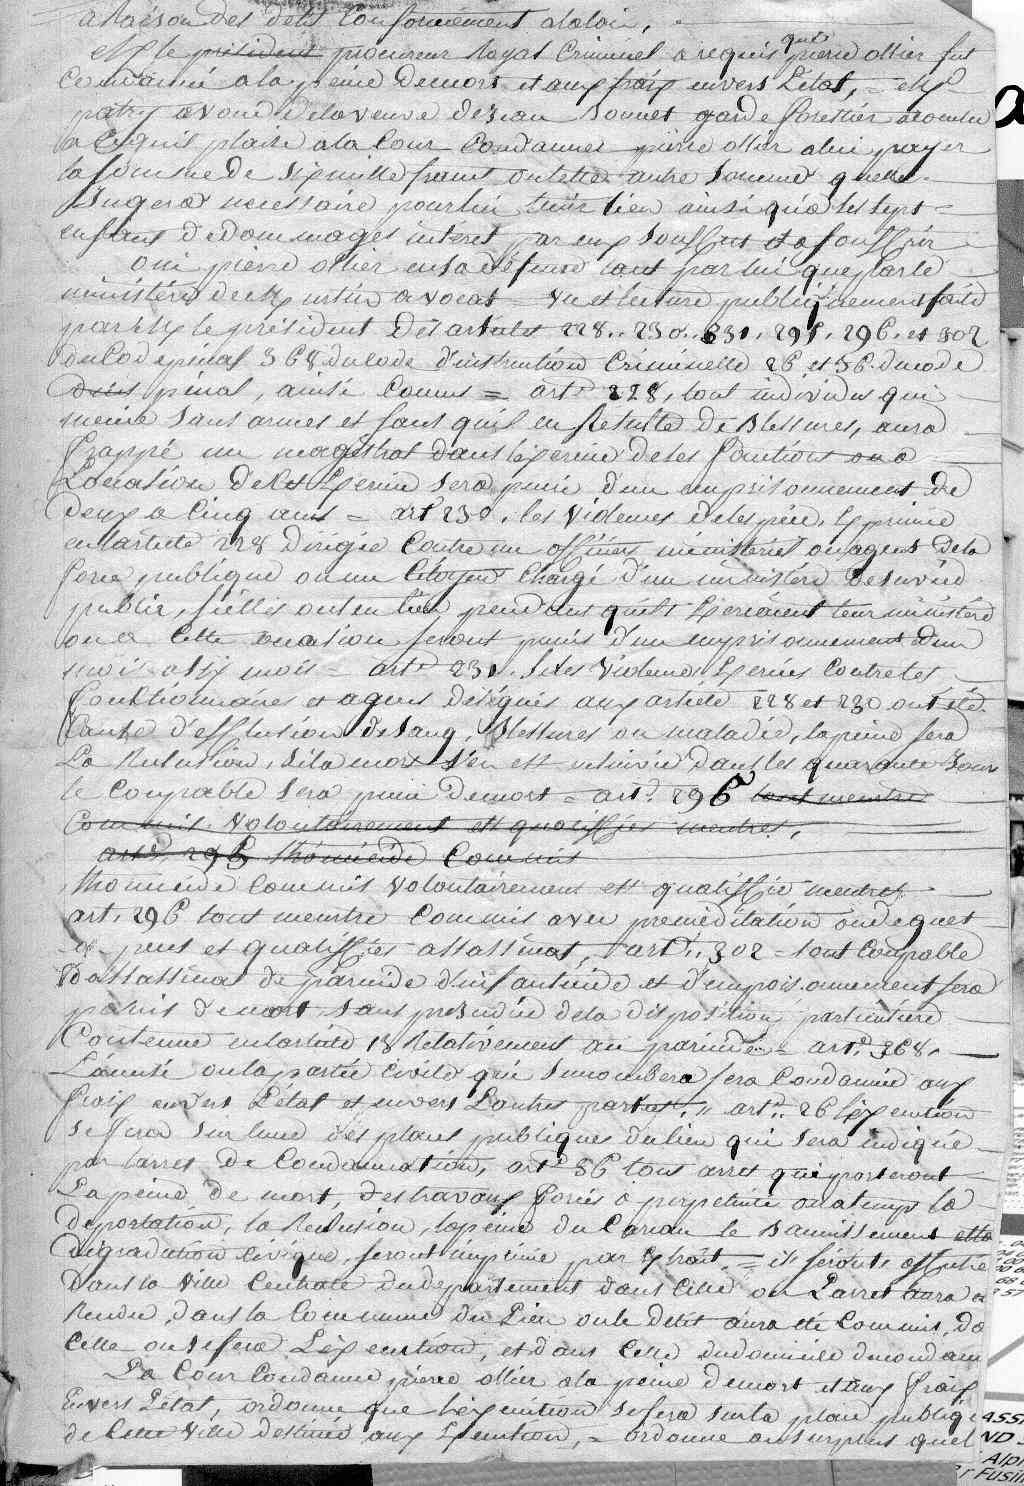 a Raison des delit Conformément alaloi,
et Mr le président procureur Royal Criminel a requis que pierre ollier fut
Condamné a la peine demort et aux fraix envers L'état, = et Mr
patry avoué delaveuve dejean Bonnet garde forestier aconclu
a cequil plaise ala Cour Condamner pierre ollier alui payer
la somme de Sixmille francs outelle autre Somme quelle
Jugera necessaire pourlui tenir lieu ainsi qua ses sept
enfants dedommages interet par eux Souffert et a souffrir
Oui pierre ollier ensa défense tant par lui que par le
ministère de Mr avocat = Vu et lecture publiquement faite
par Mr le président Des articles 228.. 230.. 231. 295. 296. et 302
du Code pénal 368 ducode d'instruction Criminelle 26 et 36 ducode
pénal, ainsi Conçus = art. 228, tout individu qui
meme Sans armes et sans quil en Resulte de Blessures, aura
frappé un magistrat dans l'exercice deses fonctions ou a
Loccation de cet Exercice Sera puni dun emprisonnement de
deux a Cinq ans = art 230. les Violences delespèce Exprimé
enlarticle 228 dirigée Contre un officier ministeriel ou agent dela
force publique ou un Citoyen Chargé d'un ministère deservice
public, si elles onteu lieu pendant quils Exercaient leur ministère
ou a Cette occation seront punis d'un emprisonnement dun
mois a Six mois = art. 231. Siles Violences Exercées Contre les
fonctionnaires et agens désignés aux article 228 et 230 ont été
Cause d'effusion de Sang, Blessures ou maladie, lapeine sera
La Reclusion, Sila mort S'en est ensuivie dans les quarante Jours
le Coupable Sera puni demort = art. 296 tout meurtre
Commis Volontairement est qualiffié meurtre,
art. 295 lhomicide Commis
lhomicide Commis Volontairement est qualiffié meurtre
art. 296 tout meurtre Commis avec premeditation oudeguet
apens est qualiffiés assassinat, art.. 302 = tout Coupable
dassassinat de parricide dinfanticide et d'empoisonnement sera
punis demort Sans prejudice dela disposition particulière
Contenue enlarticle 13 Relativement au parricide = art. 368.
L'acusé oulapartie civile qui Succombera sera Condamnée aux
fraix envers L'état et envers L'autre partie. " art.. 26 L'exécution
Sefera Sur lune des places publiques dulieu qui Sera indiqué
par larret de Condamnation, art. 36 tous arret qui porteront
La peine de mort, des travaux forcés a perpetuité ou atemps la
deportation, la Reclusion, lapeine du Carcan le Bannissement et la
dégradation civique, seront imprimé par Extrait = ils seront affiché
dans la Ville Centrale du departement dans Celle ou L'arret aura été
Rendu, dans la Commune du Lieu oule Delit aura été Commis, da
Celle ou Sefera L'exécution, et dans Celle du domicile ducondam
La Cour Condamne pierre ollier ala peine demort et aux fraix
Envers L'état, ordonne que Lexecution Sefera Surla place publiq
de Cette Ville destinée aux Execution, = ordonne ausurplus quel